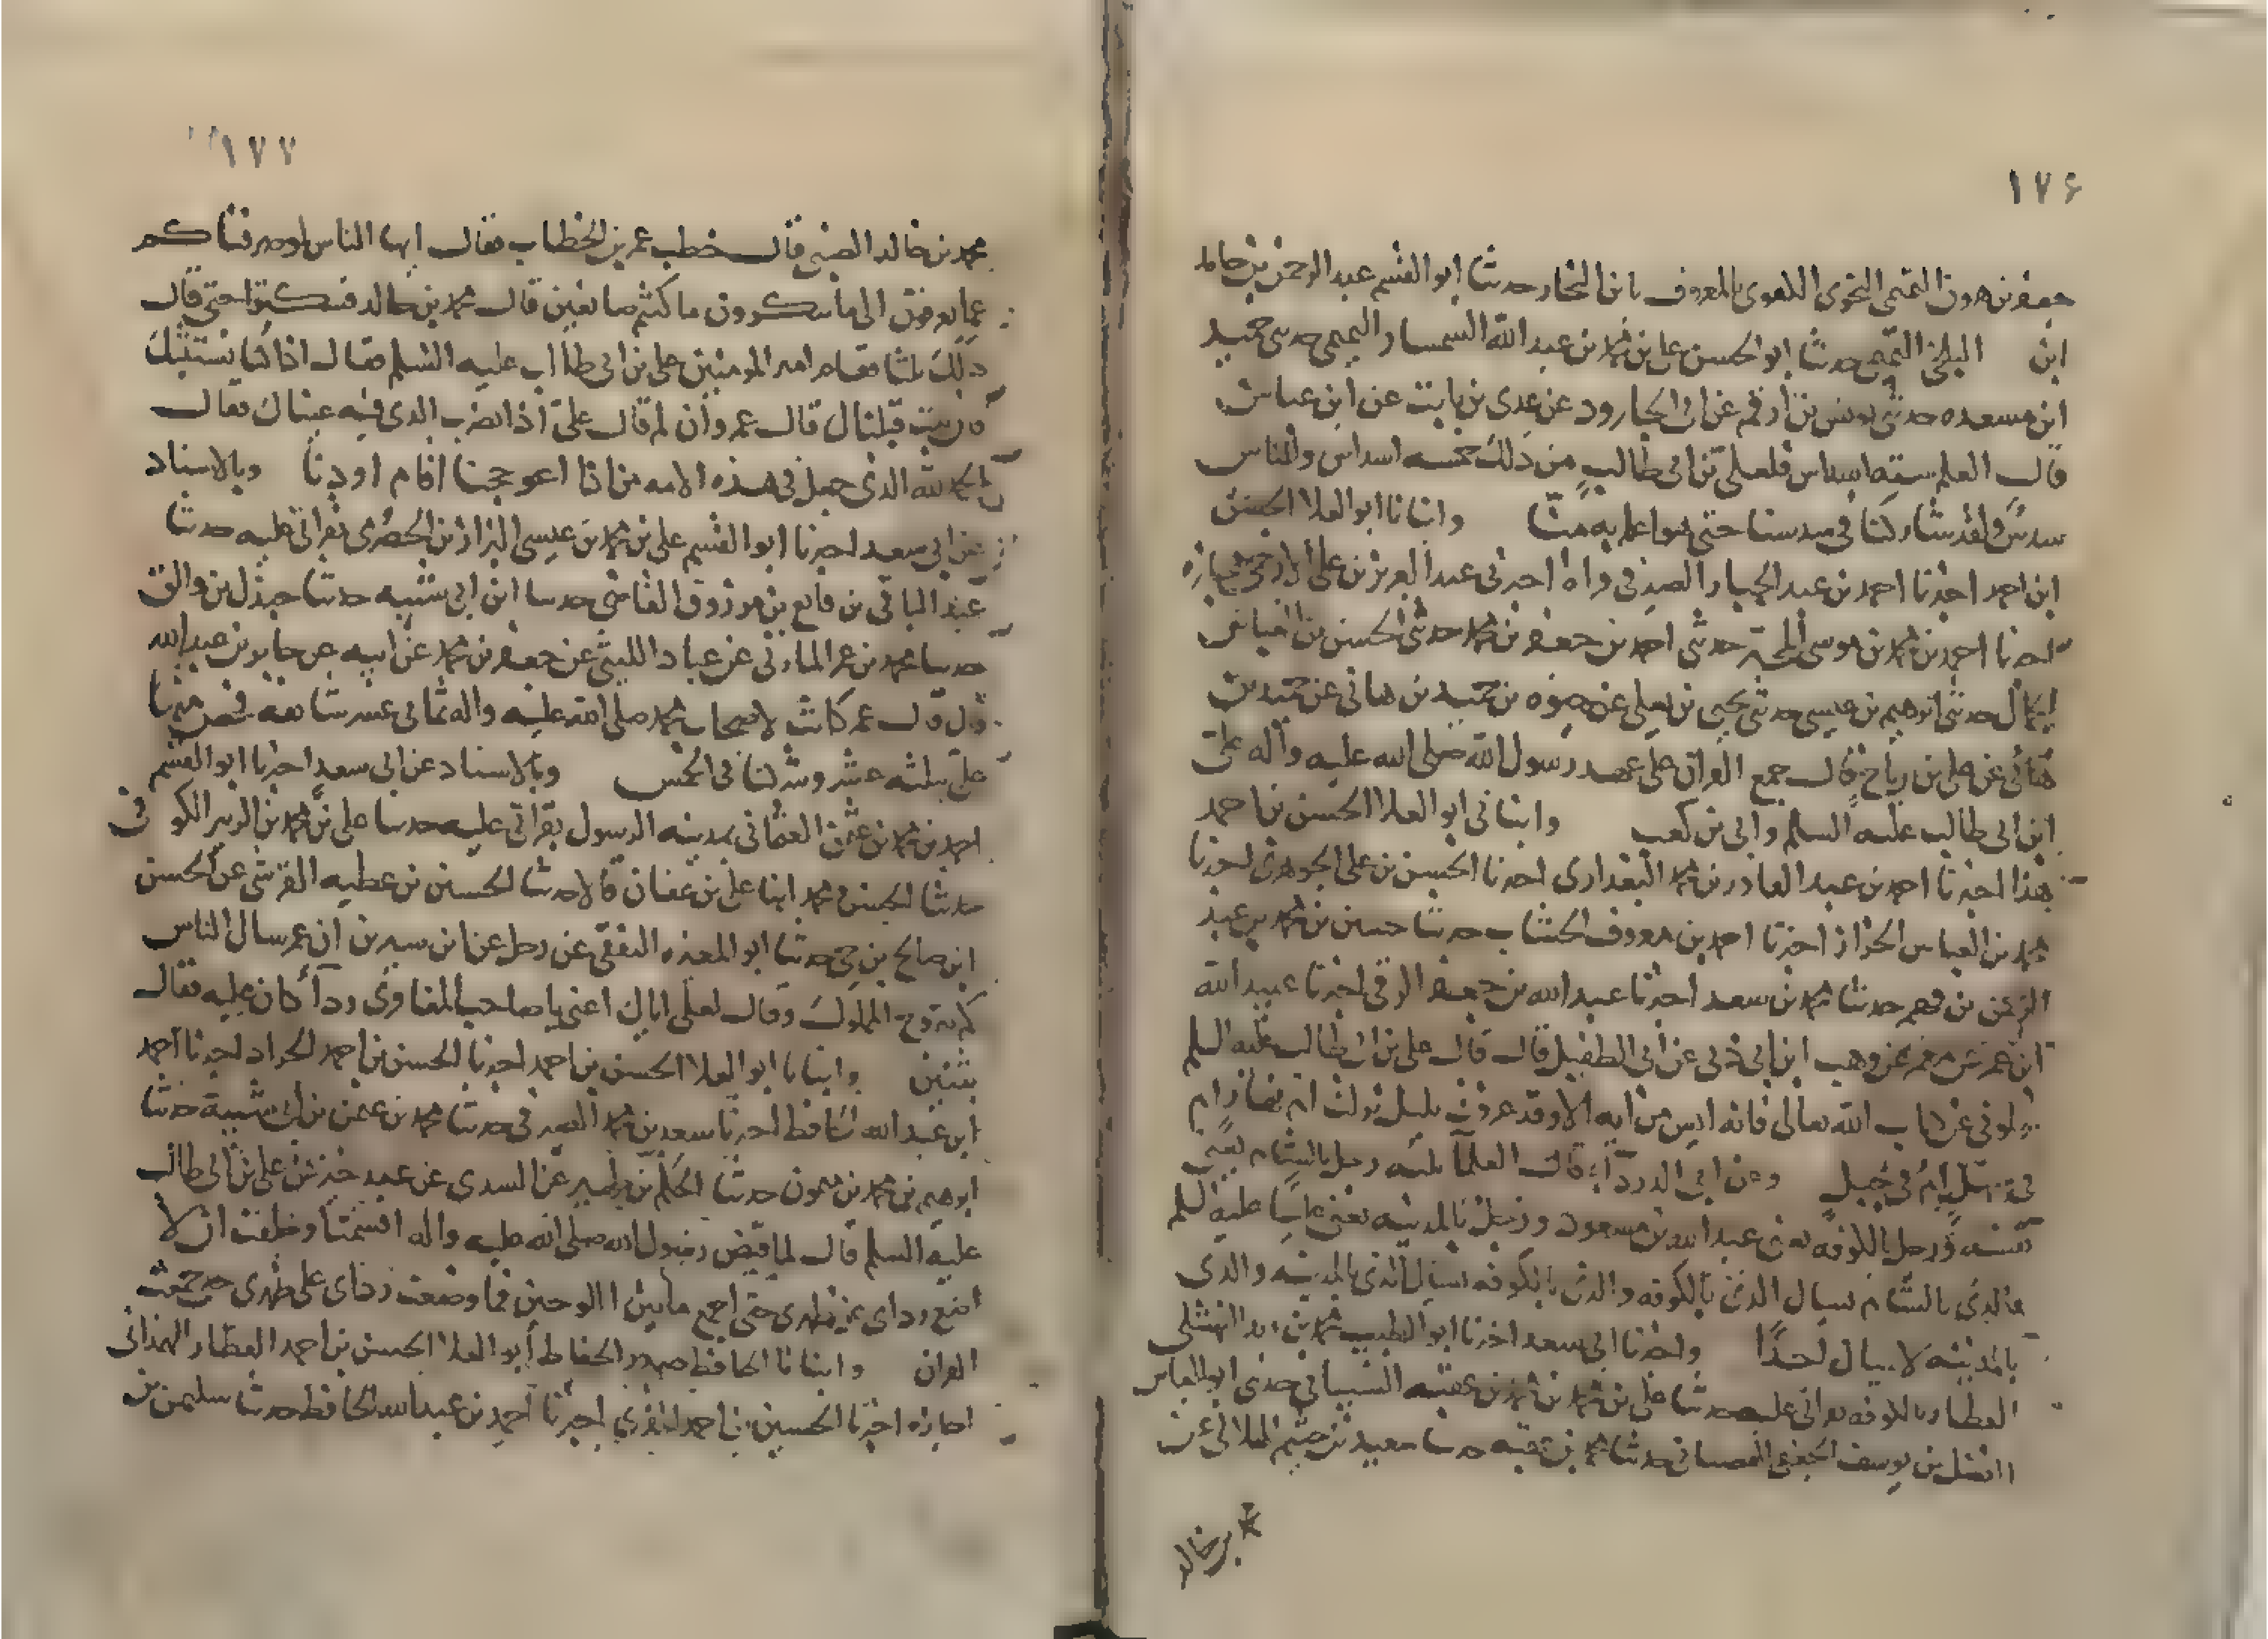 ١٧٦
جعفر بن هرون التميمى النحوى اللغوى المعروف بابن النجار حدثنا ابو القسم عبد الرحمن بن حامد
ابن البلخى التميمى حدثنا ابو الحسن على بن محمد بن عبد الله السمسار التميمى حدثنى حميد
ابن مسعده حدثنى يونس بن ارقم عن ابى الجارود عن عدى بن ثابت عن ابن عباس
قال العلم سته اسداس فلعلى بن ابى طالب من ذلك خمسه اسداس وللناس
سدس ولقد شاركنا فى سدسنا حتى هو اعلم به منا وانبانا ابو العلا الحسن
ابن احمد اخبرنا احمد بن عبد الجبار الصيرفى اخبرنى عبد العزيز بن على الازجى اجازه
اخبرنا احمد بن محمد بن موسى حدثنى احمد بن جعفر بن محمد حدثنى الحسن بن العباس
حدثنى ابرهيم بن عيسى حدثنى يحيى بن يعلى عن حمزه بن حميد بن هانى عن حميد بن
هانى عن على بن رباح قال جمع القران على عهد رسول الله صلى الله عليه واله على
ابن ابى طالب عليه السلم وابى بن كعب وانبانى ابو العلا الحسن بن احمد
هذا اخبرنا احمد بن عبد القادر بن محمد البغدادى اخبرنا الحسن بن على الجوهرى اخبرنا
محمد بن العباس الخزاز اخبرنا احمد بن معروف الخشاب حدثنا حسين بن محمد بن عبد
الرحمن بن فهم حدثنا محمد بن سعد اخبرنا عبد الله بن جعفر الرقى اخبرنا عبيد الله
ابن عمر عن معمر عن وهب ابن ابى دبى عن ابى الطفيل قال قال على بن ابى طالب عليه السلم
سلونى عن كتاب الله تعالى فانه ليس من ايه الا وقد عرفت بليل نزلت ام بنهار ام
فى سهل ام فى جبل وعن ابى الدردآء قال العلمآ ثلثه رجل بالشام يعنى
نفسه ورجل بالكوفه يعنى عبد الله بن مسعود ورجل بالمدينه يعنى عليا عليه السلم
فالذى بالشام يسال الذى بالكوفه والذى بالكوفه يسال الذى بالمدينه والذى
بالمدينه لا يسال احدًا واخبرنا ابى سعد اخبرنا ابو الطيب محمد بن زيد النهشلى
العطار بالكوفه بقراتى عليه حدثنا على بن محمد بن محمد بن عقبه الشيبانى حدثنى ابو العباس
الفضل بن يوسف الجعفى القصبانى حدثنا محمد بن عقبه حدثنا سعيد بن خثيم الهلالى عن
بن خالد
١٧٧
محمد بن خالد الضبى قال خطب عمر بن الخطاب فقال ايها الناس لو صرفناكم
عما تعرفون الى ما تنكرون ما كنتم صانعين قال محمد بن خالد فسكتوا حتى قال
ذلك ثلثا فقام امير المومنين على بن ابى طالب عليه السلم فقال اذا كنا نستتيبك
فان تبت قبلناك قال عمر وان لم قال على اذا نضرب الذى فيه عيناك فقال
الحمد لله الذى جعل فى هذه الامه من اذا اعوججنا اقام اودنا وبالاسناد
عن ابى سعد اخبرنا ابو القسم على بن محمد بن عيسى البزاز بن الحصرى بقراتى عليه حدثنا
عبد الباقى بن قانع بن مرزوق القاضى حدثنا ابن ابى شيبه حدثنا جندل بن والق
حدثنا محمد بن عمر المازنى عن عباد الليثى عن جعفر بن محمد عن ابيه عن جابر بن عبد الله
قال قال عمر كانت لاصحاب محمد صلى الله عليه واله ثمانى عشر سابقه فخص منها
على بثلثه عشر وشركنا فى الخمس وبالاسناد عن ابى سعد اخبرنا ابو القسم
احمد بن محمد بن عثمن العثمانى بمدينه الرسول بقراتى عليه حدثنا على بن محمد بن الزبير الكوفى
حدثنا الحسن ومحمد ابنا على بن عفان قالا حدثنا الحسين بن عطيه القرشى عن الحسن
ابن صالح بن حى حدثنا ابو المغيره الثقفى عن رجل عن ابن سيرين ان عمر سال الناس
كم يتزوج المملوك وقال لعلى اياك اعنى يا صاحب المعافرى ردآ كان عليه فقال
ثنتين وانبانا ابو العلا الحسن بن احمد اخبرنا الحسن بن احمد الحداد اخبرنا احمد
ابن عبد الله الحافظ اخبرنا سعد بن محمد الصيرفى حدثنا محمد بن عثمن بن ابى شيبة حدثنا
ابرهيم بن محمد بن ميمون حدثنا الحكم بن ظهير عن السدى عن عبد خير عن على بن ابى طالب
عليه السلم قال لما قبض رسول الله صلى الله عليه واله اقسمت او حلفت ان لا
اضع رداى عن ظهرى حتى اجمع ما بين اللوحين فما وضعت رداى على ظهرى حتى جمعت
القران وانبانا الحافظ صدر الحفاظ ابو العلا الحسن بن احمد العطار الهمدانى
اجازه اخبرنا الحسن بن احمد المقرى اخبرنا احمد بن عبد الله الحافظ حدثنا سليمن بن